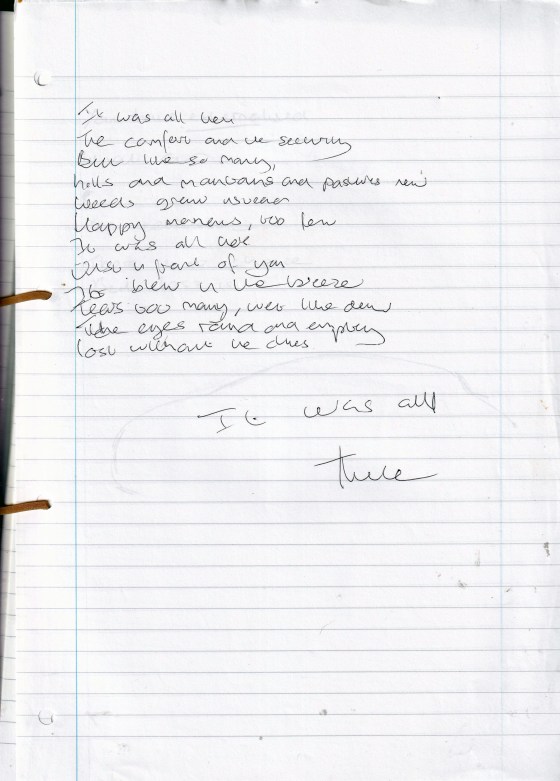 It was all here
The comfort and the security
But like so many,
hills and mountains and pastures new
Weeds grew
Happy moments, too few
It was all here
Just in front of you
It blew in the breeze
Tears too many, wet like dew
The eyes round and empty
lost without the clues
It was all
there